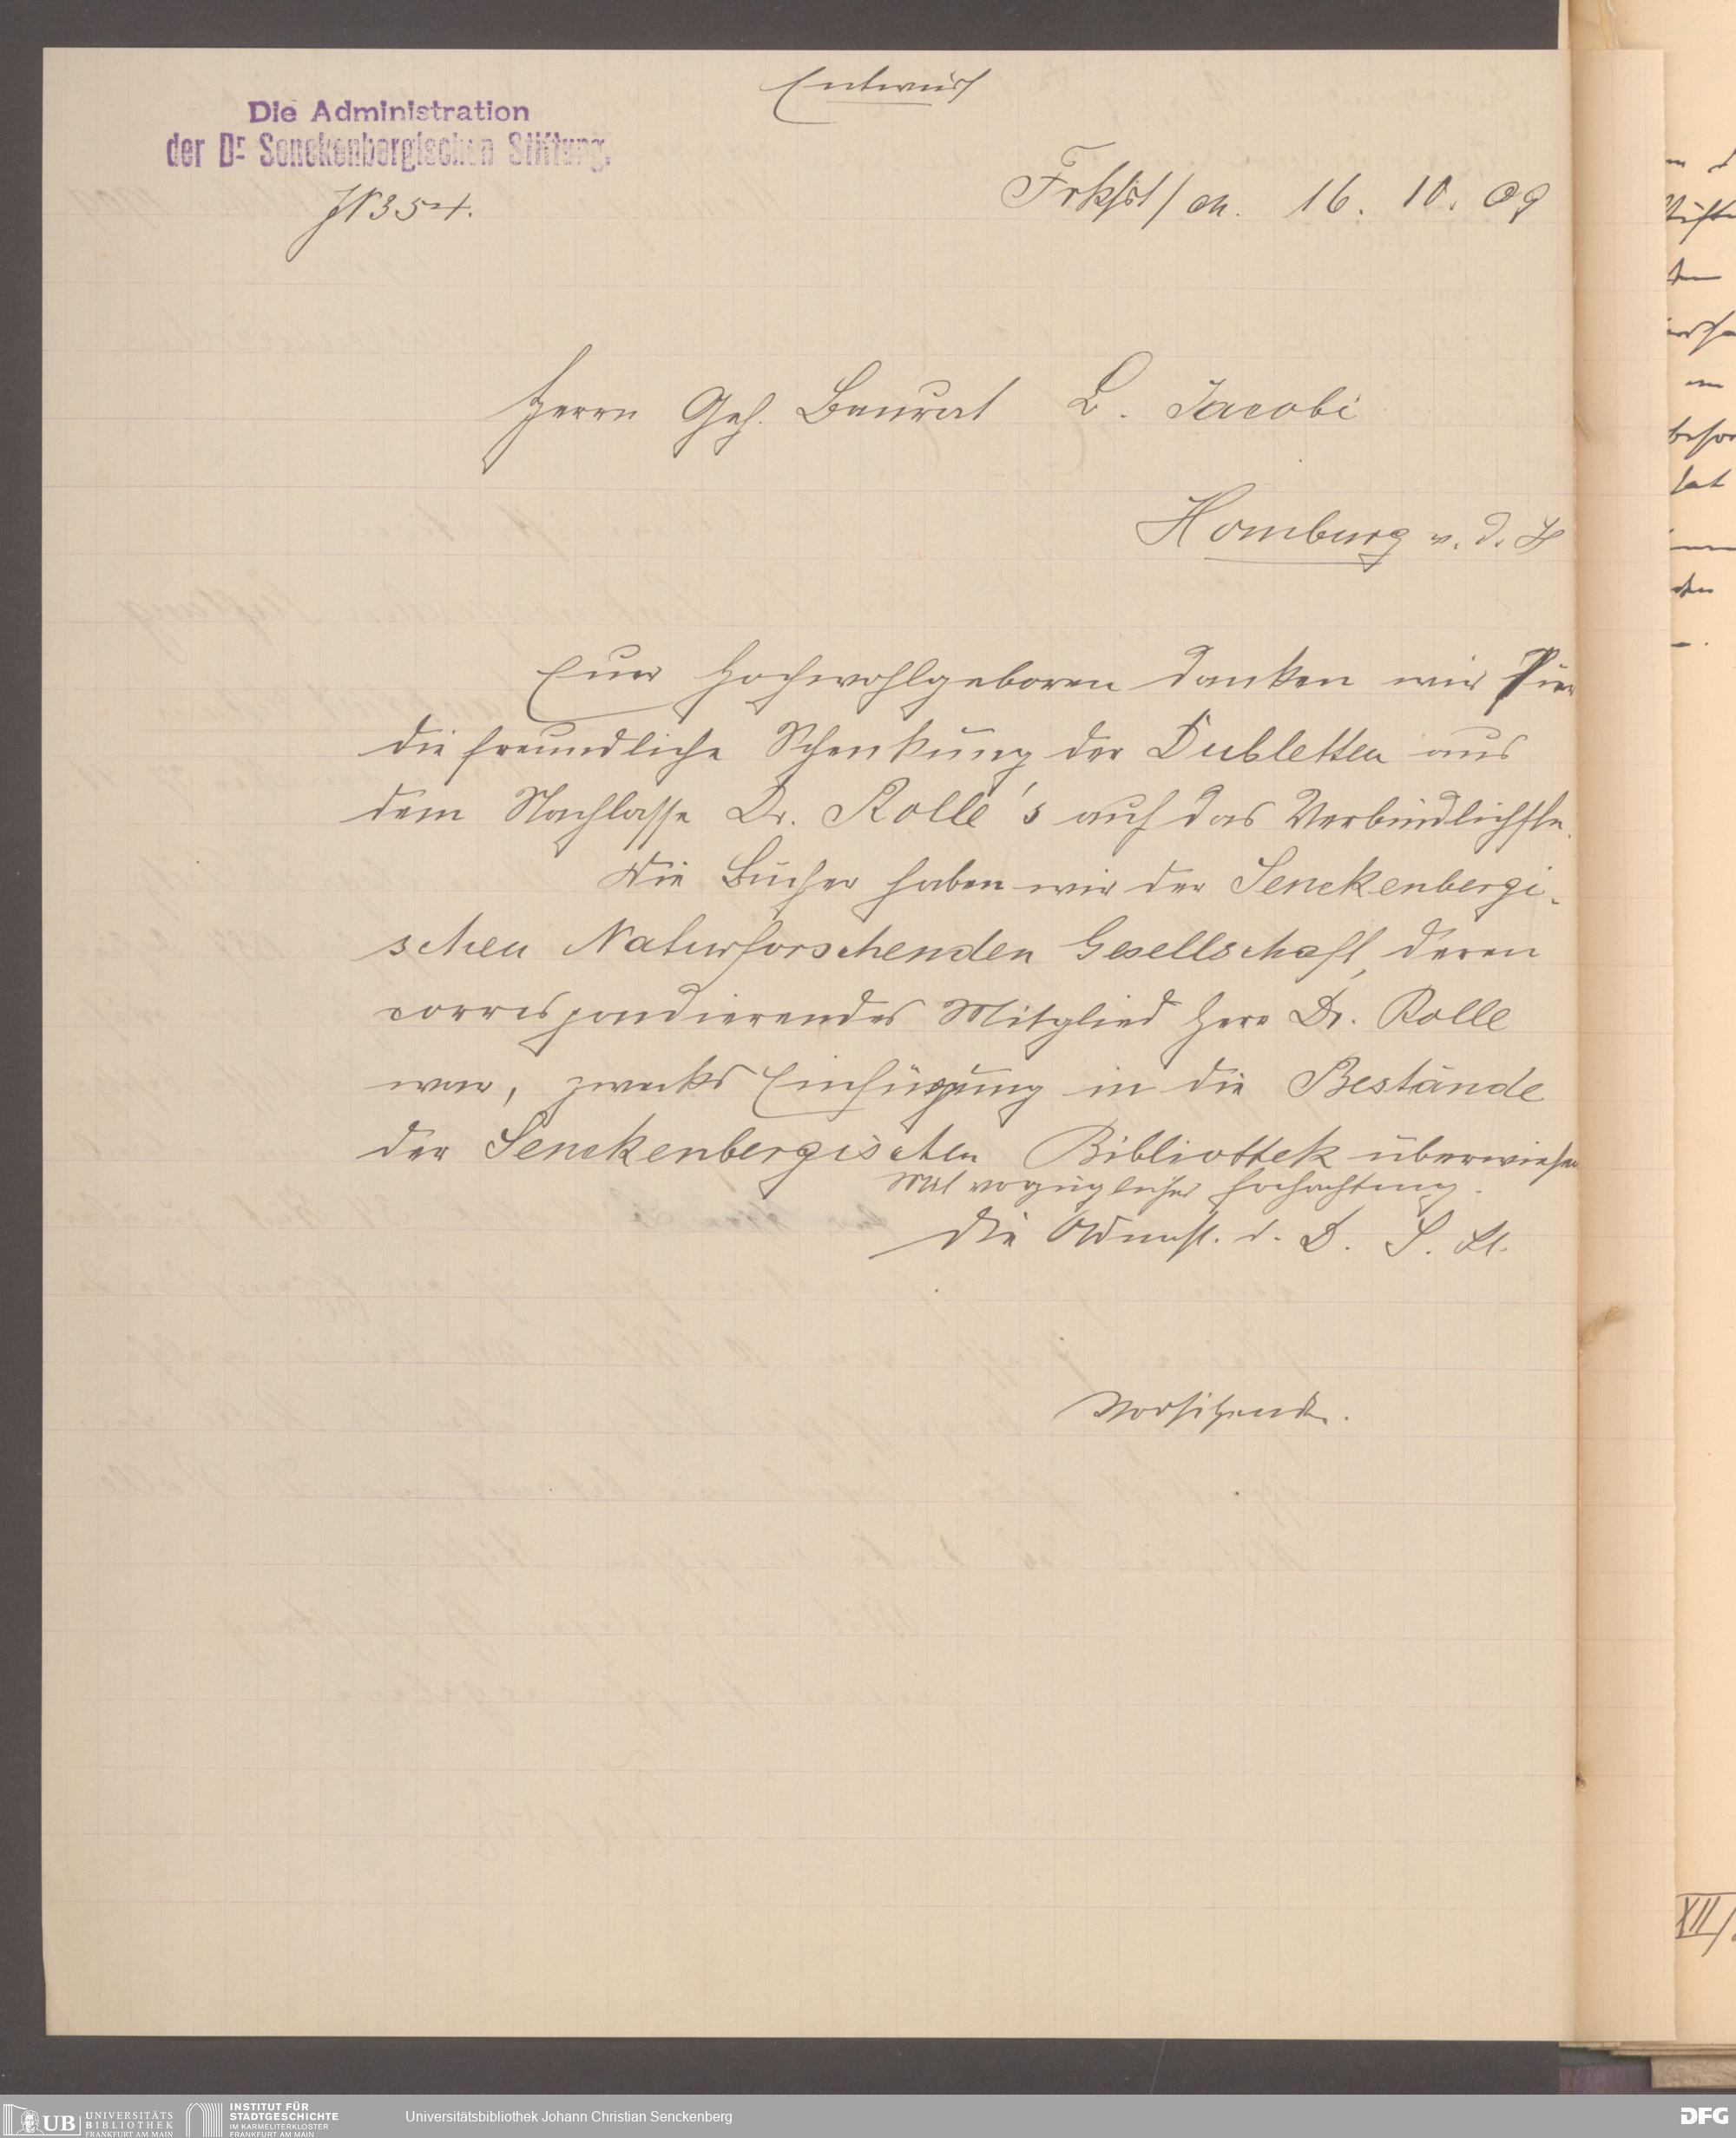 Entwurf
Die Administration
der Dr. Senckenbergischen Stiftung.
JN 354.
Frkfurt/M. 16. 10. 09
Herrn Geh. Baurat L. Jacobi
Homburg v. d. H
Euer Hochwohlgeboren danken wir für
die freundliche Schenkung der Dubletten aus
dem Nachlasse Dr. Rolle's auf das Verbindlichste.
Die Bücher haben wir der Senckenbergi-
schen Naturforschenden Gesellschaft, deren
correspondierendes Mitglied Herr Dr. Rolle
war, zwecks Einfügung in die Bestände
der Senckenbergischen Bibliothek überwiesen
Mit vorzüglicher Hochachtung.
Die Admst. d. D. S. St.
Vorsitzender.
XII/
UB UNIVERSITÄTS
BIBLIOTHEK
FRANKFURT AM MAIN
INSTITUT FÜR
STADTGESCHICHTE
IM KARMELITERKLOSTER
FRANKFURT AM MAIN
Universitätsbibliothek Johann Christian Senckenberg
DFG